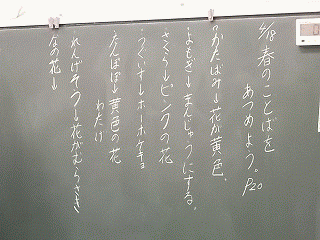 4/18 春のことばを
あつめよう。P20
かたばみ→花が黄色。
よもぎ→まんじゅうにする。
さくら→ピンクの花
うぐいす→ホーホケキョ
たんぽぽ→黄色の花
わたげ
れんげそう→花がむらさき
なの花→